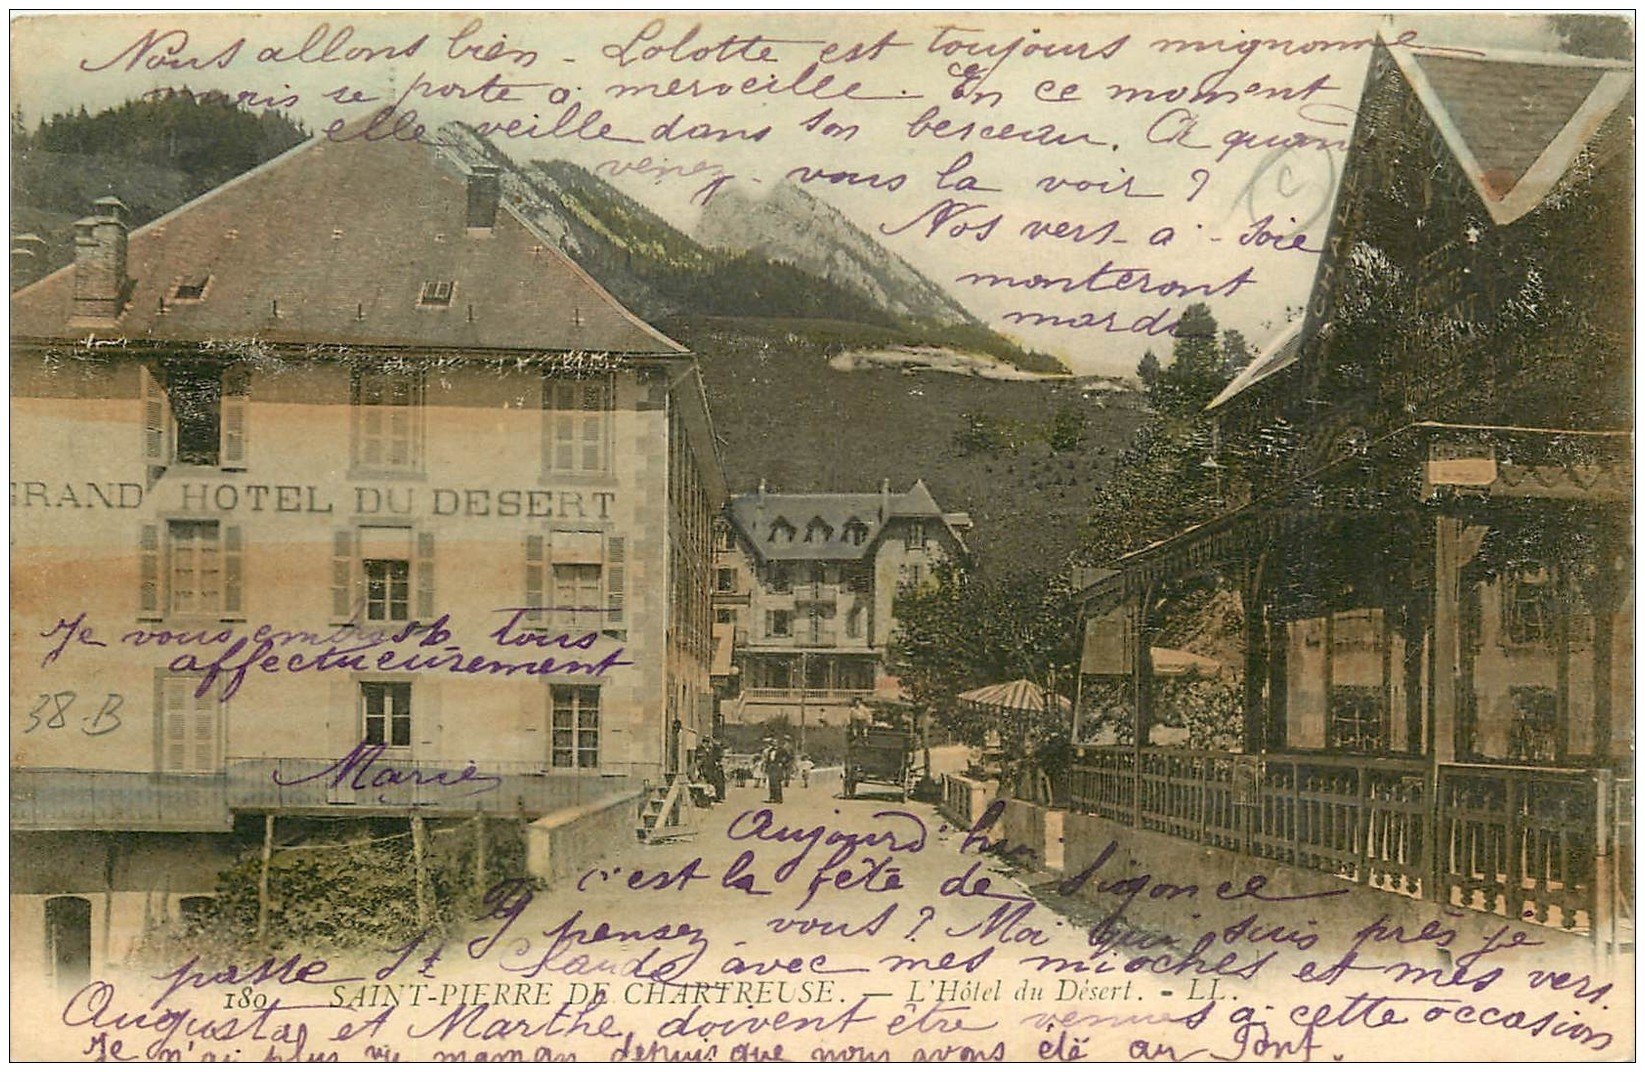 Nous allons bien - Lolotte est toujours mignonne
mais se porte à merveille. En ce moment
elle veille dans son berceau. A quand
venez - vous la voir ?
Nos vers - à - soie
monteront
mardi
C
CHALET
GRAND HOTEL DU DESERT
Je vous embrasse tous
affectueusement
38-B
Marie
Aujourd'hui
c'est la fête de Sigonce
Y pensez - vous ? Moi qui suis près je
passe St Claude avec mes mioches et mes vers.
180 SAINT-PIERRE DE CHARTREUSE. — L'Hôtel du Désert. - LL.
Augusta et Marthe doivent être venues à cette occasion
Je n'ai plus vu maman depuis que nous avons été au Pont.